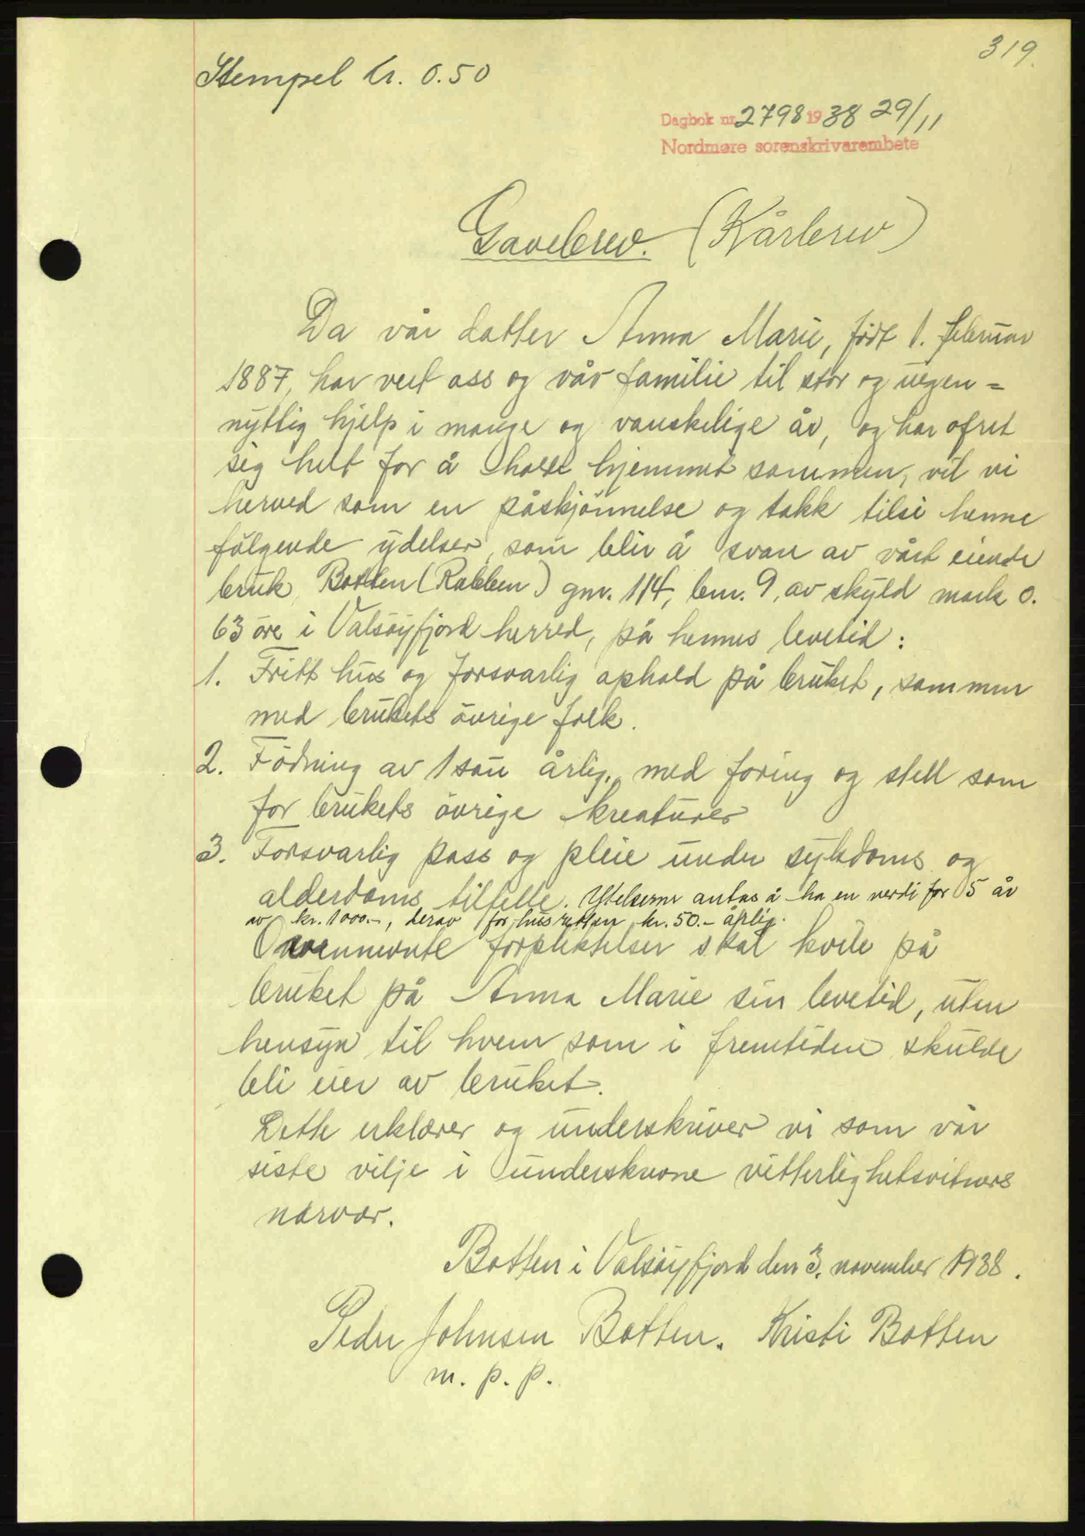 319.
Stempel kr. 0.50
Dagbok nr. 2798 1938 29/11
Nordmøre sorenskrivarembete
Gavebrev. (Kårbrev)
Da vår datter Anna Marie, født 1. februar
1887, har vert oss og vår familie til stor og uegen=
nyttig hjelp i mange og vanskelige år, og har ofret
sig helt for å holde hjemmet sammen, vil vi
herved som en påskjønnelse og takk tilsi henne
følgende ydelser, som blir å svare av vårt eiende
bruk Botten (Rabben) gnr. 114, bnr. 9, av skyld mark 0.
63 øre i Valsøyfjord herred, på hennes levetid:
1. Fritt hus og forsvarlig ophold på bruket, sammen
med brukets övrige folk.
2. Födning av 1 sau årlig, med foring og stell som
for brukets övrige kreaturer
3. Forsvarlig pass og pleie under sykdoms og
alderdoms tilfelle. Ytelserne antas å ha en verdi for 5 år
av kr. 1000.-, derav for husretten kr. 50.- årlig.
Ovennevnte forpliktelser skal hvile på
bruket på Anna Marie sin levetid, uten
hensyn til hvem som i fremtiden skulde
bli eier av bruket.
Dette erklærer og underskriver vi som vår
siste vilje i underskrevne vitterlighetsvitners
nærvær.
Botten i Valsøyfjord den 3. november 1938.
Peder Johnsen Botten. Kristi Botten
m. p. p.